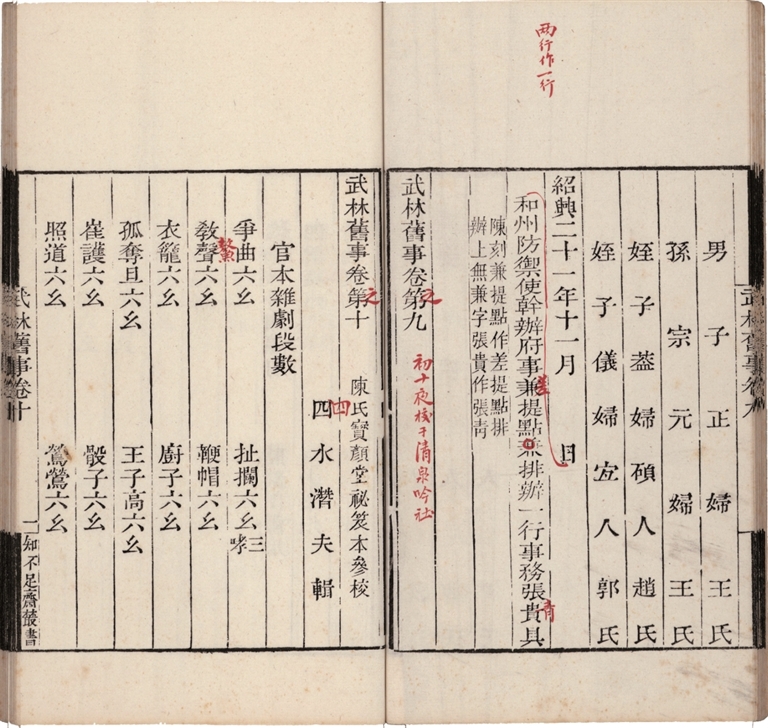 兩行作一行
武林舊事卷九
男子正婦王氏
孫宗元婦王氏
姪子蓋婦碩人趙氏
姪子儀婦宜人郭氏
紹興二十一年十一月 日
和州防禦使幹辦府事兼提點兼排辦一行事務張貴具
差
青
陳刻兼提點作差提點排
辦上無兼字張貴作張靑
武林舊事卷第九
之
初十夜校于清泉吟社
武林舊事卷第十
之
陳氏寶顏堂祕笈本參校
四水潛夫輯
四
官本雜劇段數
爭曲六幺
扯攔六幺三哮
教聲六幺
鰲
鞭帽六幺
衣籠六幺
廚子六幺
孤奪旦六幺
王子高六幺
崔護六幺
骰子六幺
照道六幺
鶯鶯六幺
武林舊事卷十
一
知不足齋叢書